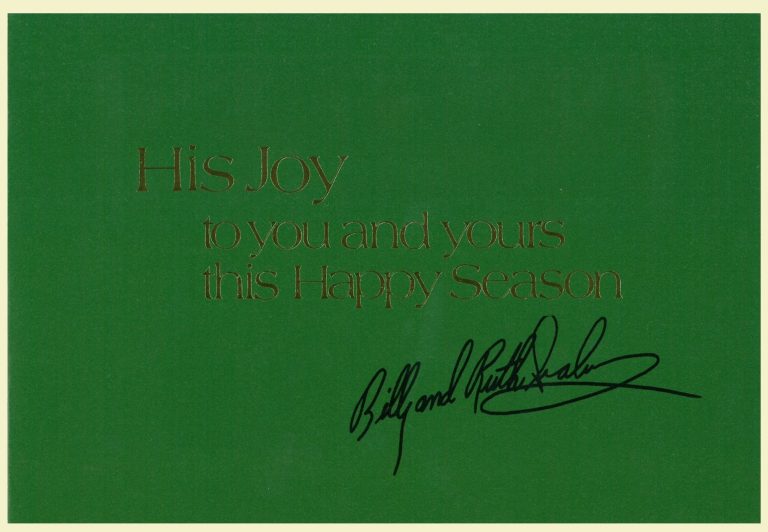 His Joy
to you and yours
this Happy Season
Billy and Ruth Graham